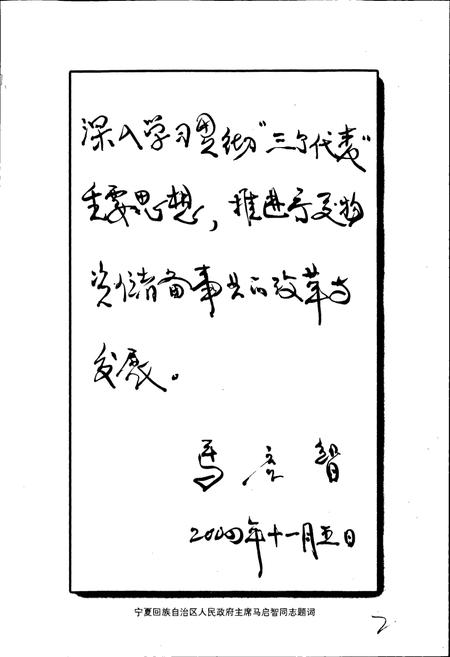 深入学习贯彻“三个代表”
重要思想，推进宁夏物
资储备事业的改革与
发展。
马启智
2004年十一月五日
宁夏回族自治区人民政府主席马启智同志题词
2